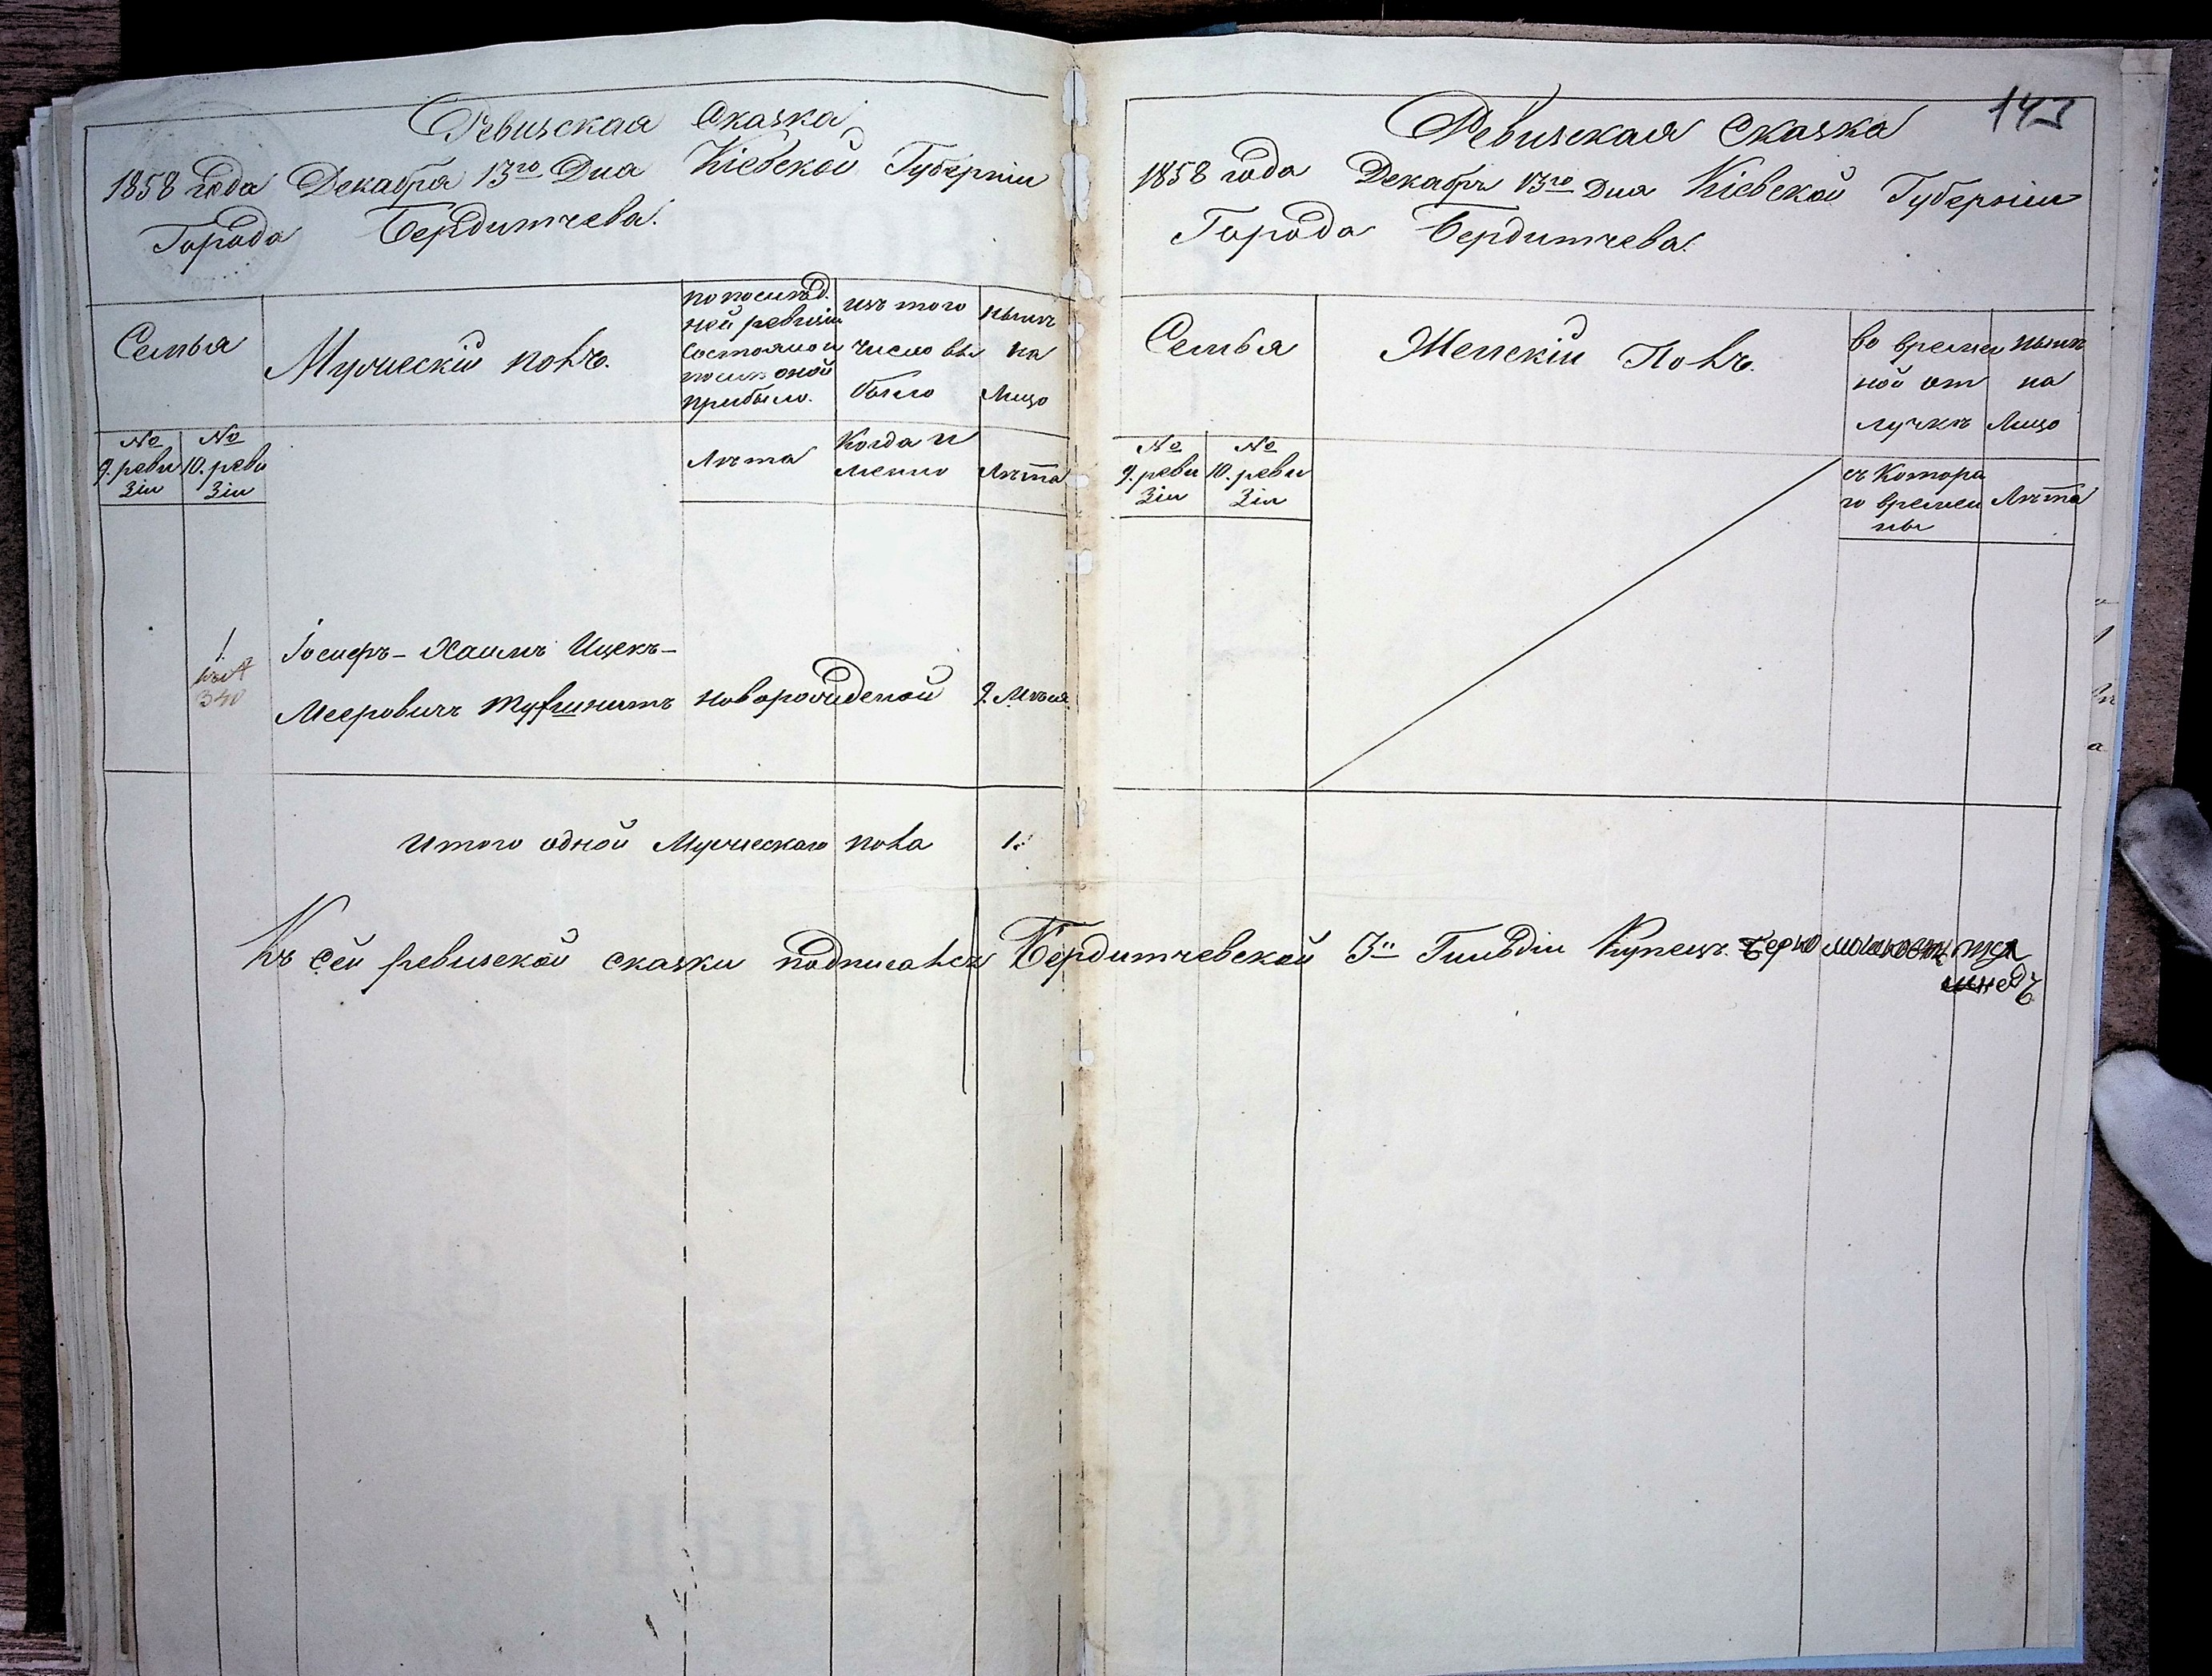 Ревизская Сказка
1858 года Декабря 13го Дня Кіевской Губерніи
Города Бердитчева.
Семья
Мужескій полъ.
по послѣд.
ней ревизіи
состояло и
послѣ оной
прибыло.
изъ того
число вы
было
нынѣ
на
Лицо
№
9. реви
Зіи
№
10. реви
Зіи
Лѣта
Когда и
менно
Лѣта
1.
340
Іосифъ-Хаимъ Ицекъ-
Мееровичъ новорожденой 9. Мѣсяц
Итого одной Мужескаго пола 1.
Къ сей ревизской сказки подписался Бердитчевской 3й Гильдіи Купецъ. Берко
143
Ревизская Сказка
1858 года Декабръ 13го Дня Кіевской Губерніи
Города Бердитчева.
Семья
Женскій Полъ.
во времен
ной от
лучкѣ
нынѣ
на
Лицо
№
9. реви
Зіи
№
10. реви
Зіи
съ Котора
го времен
ны
Лѣта